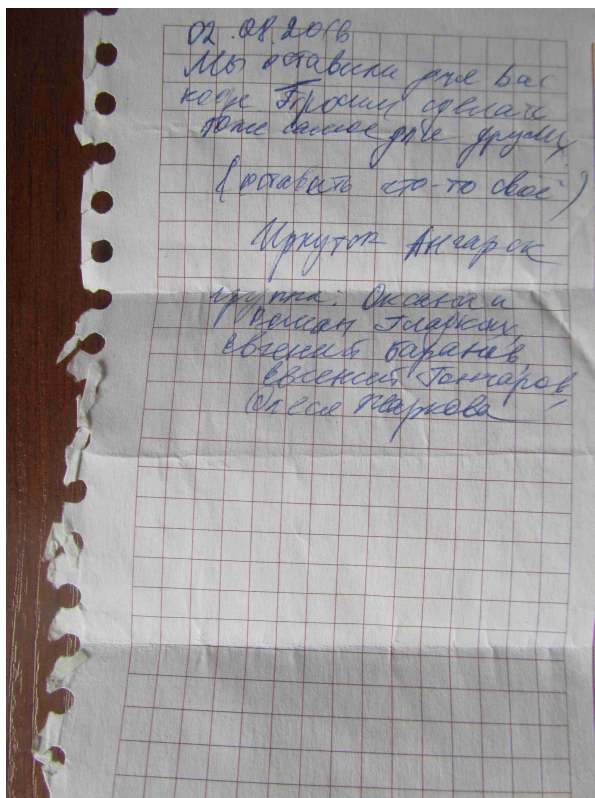 02.08.2016
Мы оставили для вас
кофе Просим сделать
тоже самое для других
(оставить что-то своё)
Иркутск Ангарск
группа: Оксана и
Роман Гладких,
Евгений Баранов
Евгений Гончаров,
Олеся Жаркова